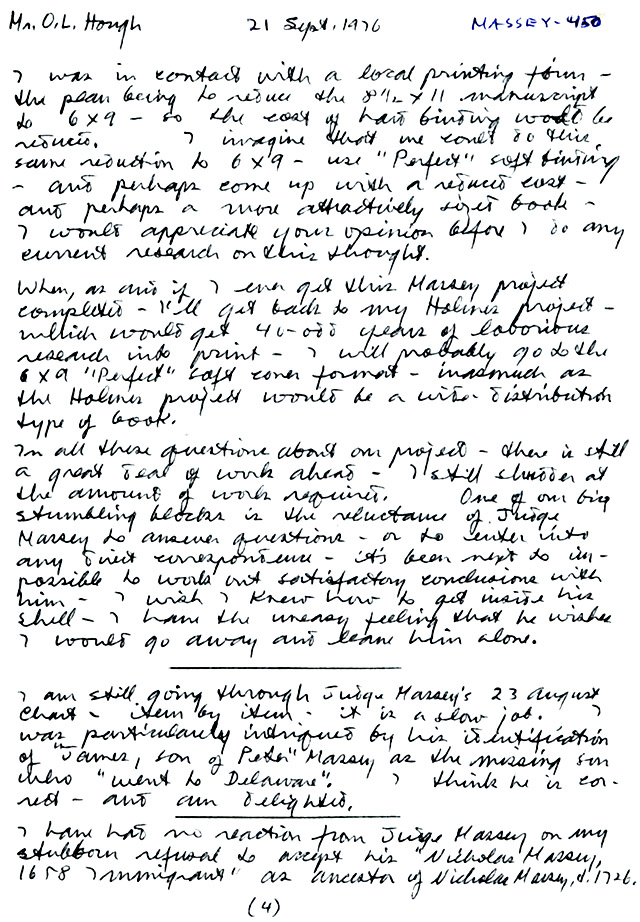 Mr. O.L. Hough 21 Sept. 1976 MASSEY-450
I was in contact with a local printing firm -
the plan being to reduce the 8½ x 11 manuscript
to 6x9 - so the cost of hard binding would be
reduced. I imagine that we could do this
same reduction to 6x9 - use "Perfect" soft binding
- and perhaps come up with a reduced cost -
and perhaps a more attractively sized book -
I would appreciate your opinion before I do any
current research on this thought.
When, as and if I ever get this Massey project
completed - I'll get back to my Holmes project -
which would get 40-odd years of laborious
research into print - I will probably go to the
6x9 "Perfect" soft cover format - inasmuch as
the Holmes project would be a wide distribution
type of book.
In all these questions about our project - there is still
a great deal of work ahead - I still shudder at
the amount of work required. One of our big
stumbling blocks is the reluctance of Judge
Massey to answer questions - or to enter into
any direct correspondence - it's been next to im-
possible to work out satisfactory conclusions with
him - I wish I knew how to get inside his
shell - I have the uneasy feeling that he wishes
I would go away and leave him alone.
I am still going through Judge Massey's 23 August
chart - item by item - it is a slow job. I
was particularly intrigued by his identification
of "James, son of Peter" Massey as the missing son
who "went to Delaware". I think he is cor-
rect - and am delighted.
I have had no reaction from Judge Massey on my
stubborn refusal to accept his "Nicholas Massey,
1658 Immigrant" as ancestor of Nicholas Massey, d. 1726.
(4)